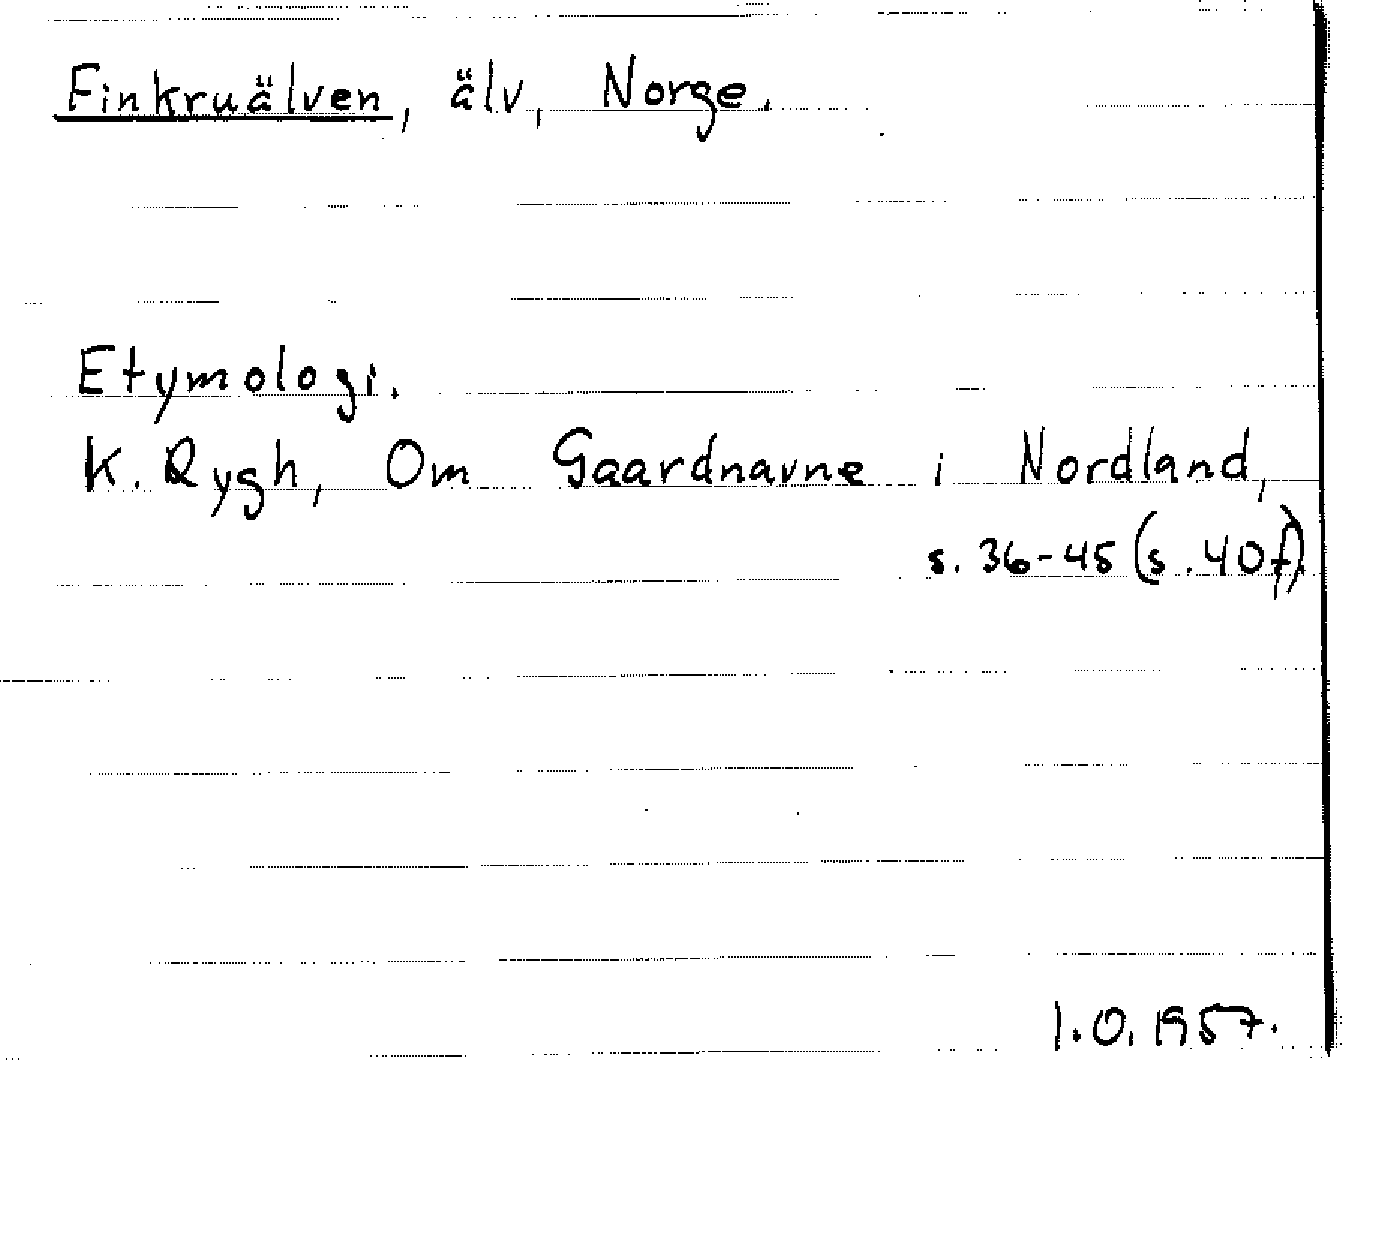 Finkruälven, älv, Norge.
Etymologi.
K. Rygh, Om Gaardnavne i Nordland,
s. 36-45 (s. 40f)
I.O. 1957.